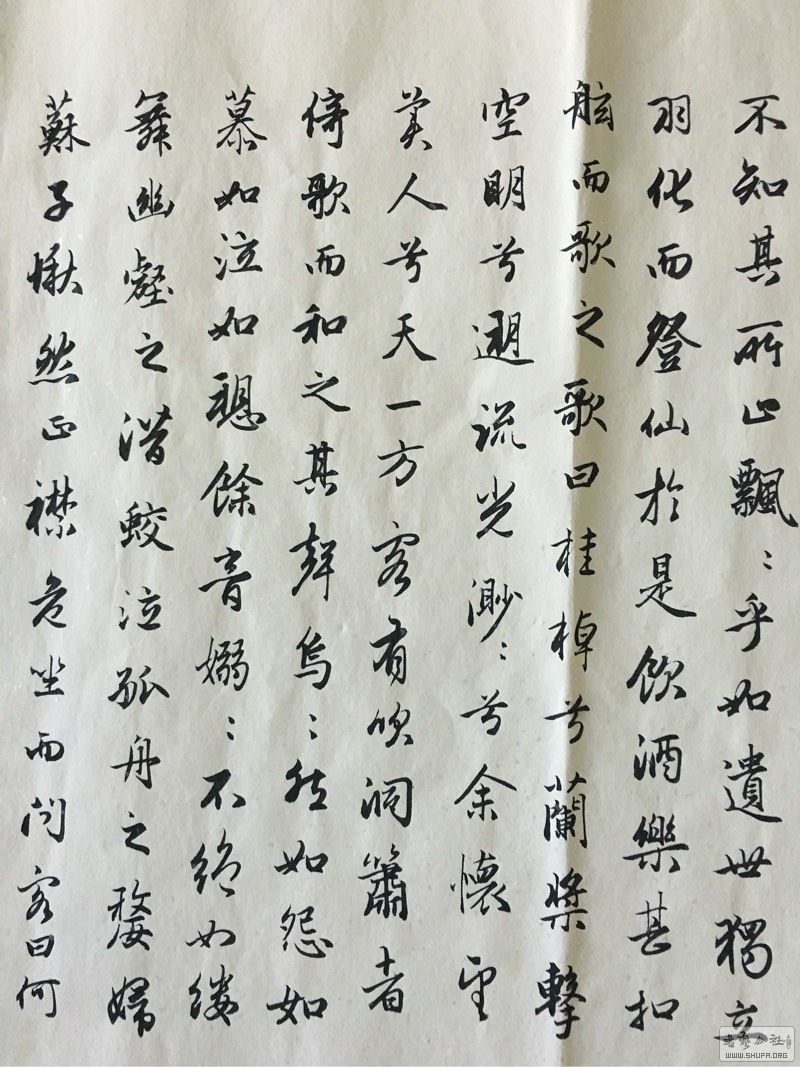 不知其所止飄〻乎如遺世獨立
羽化而登仙於是飲酒樂甚扣
舷而歌之歌曰桂棹兮蘭槳擊
空明兮遡流光渺〻兮余懷望
美人兮天一方客有吹洞簫者
倚歌而和之其聲烏〻然如怨如
慕如泣如聽餘音嫋〻不絕如縷
舞幽壑之潛蛟泣孤舟之嫠婦
蘇子愀然正襟危坐而問客曰何
WWW.SHUFA.ORG